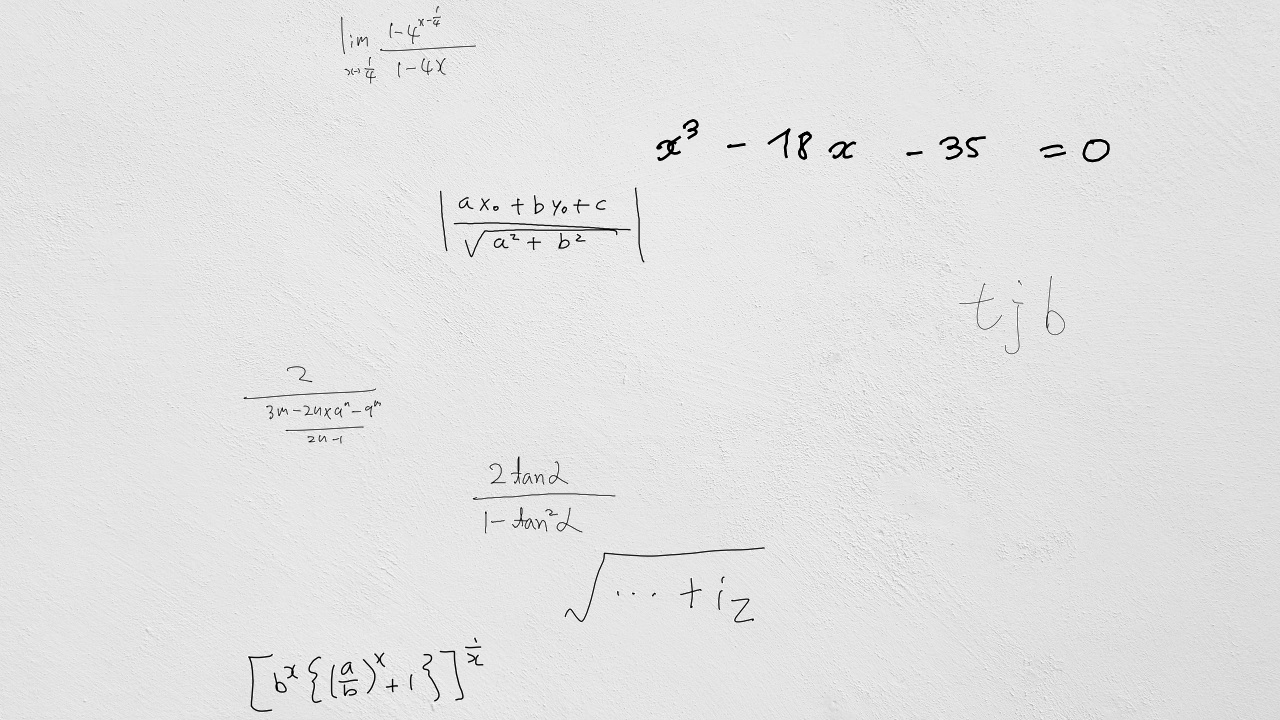 \lim_{x \to \frac{1}{4}} \frac{1-4^{x-\frac{1}{4}}}{1-4x}
x^3 - 18x - 35 = 0
\left| \frac{ax_0 + by_0 + c}{\sqrt{a^2 + b^2}} \right|
tjb
\frac{2}{\frac{3m-2n \times a^n - a^m}{2n-1}}
\frac{2\tan\alpha}{1-\tan^2\alpha}
\sqrt{\cdots + i_2}
\left[ b^x \left\{ \left( \frac{a}{b} \right)^x + 1 \right\} \right]^{\frac{1}{x}}